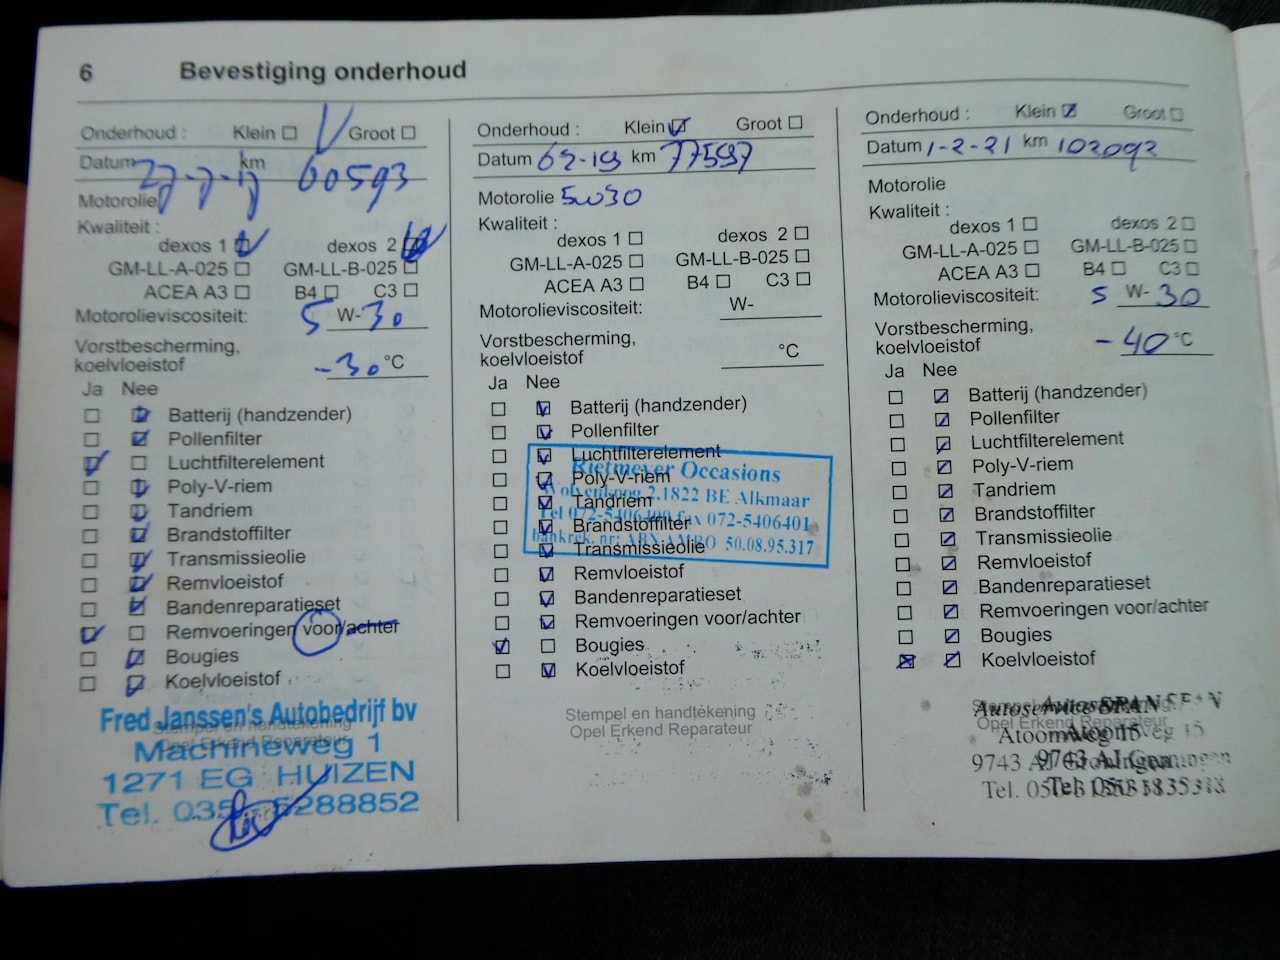 6 Bevestiging onderhoud
Onderhoud : Klein Groot
Datum km 60593
Motorolie
Kwaliteit :
dexos 1 dexos 2
GM-LL-A-025 GM-LL-B-025
ACEA A3 B4 C3
Motorolieviscositeit: 5 W-30
Vorstbescherming,
koelvloeistof -30 °C
Ja Nee
Batterij (handzender)
Pollenfilter
Luchtfilterelement
Poly-V-riem
Tandriem
Brandstoffilter
Transmissieolie
Remvloeistof
Bandenreparatieset
Remvoeringen voor/achter
Bougies
Koelvloeistof
Stempel en handtekening
Opel Erkend Reparateur
Fred Janssen's Autobedrijf bv
Machineweg 1
1271 EG HUIZEN
Tel. 035 - 5288852
Onderhoud : Klein Groot
Datum 62-19 km 77597
Motorolie 5w30
Kwaliteit :
dexos 1 dexos 2
GM-LL-A-025 GM-LL-B-025
ACEA A3 B4 C3
Motorolieviscositeit: W-
Vorstbescherming,
koelvloeistof °C
Ja Nee
Batterij (handzender)
Pollenfilter
Luchtfilterelement
Poly-V-riem
Tandriem
Brandstoffilter
Transmissieolie
Remvloeistof
Bandenreparatieset
Remvoeringen voor/achter
Bougies
Koelvloeistof
Rietmeyer Occasions
2.1822 BE Alkmaar
Tel fax 072-5406401
bankrek. nr: ABN AMRO 50.08.95.317
Stempel en handtekening
Opel Erkend Reparateur
Onderhoud : Klein Groot
Datum 1-2-21 km 102092
Motorolie
Kwaliteit :
dexos 1 dexos 2
GM-LL-A-025 GM-LL-B-025
ACEA A3 B4 C3
Motorolieviscositeit: 5 W-30
Vorstbescherming,
koelvloeistof -40 °C
Ja Nee
Batterij (handzender)
Pollenfilter
Luchtfilterelement
Poly-V-riem
Tandriem
Brandstoffilter
Transmissieolie
Remvloeistof
Bandenreparatieset
Remvoeringen voor/achter
Bougies
Koelvloeistof
Stempel en handtekening
Opel Erkend Reparateur
Autoservice SPAN
Atoomweg 15
9743 AJ Groningen